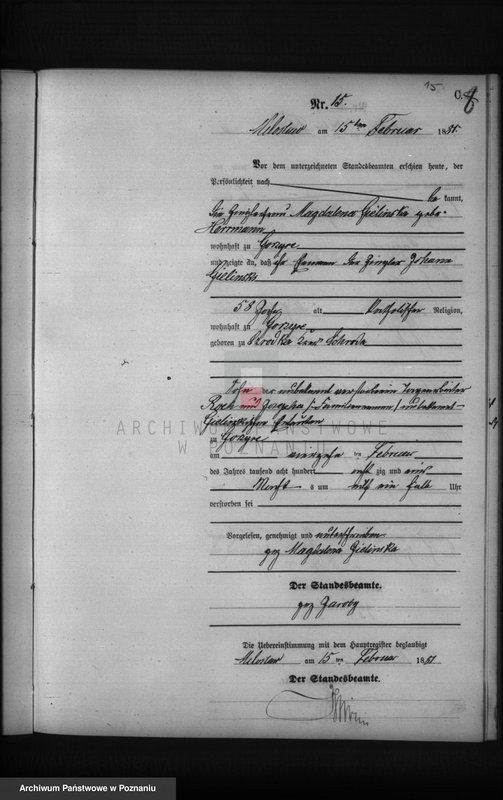 15
C.
8
Nr. 15.
Miloslaw am 15 ten Februar 1881.
Vor dem unterzeichneten Standesbeamten erschien heute, der
Persönlichkeit nach
be kannt,
die Magdalena Gielinska gebo-
Herrmann
wohnhaft zu Gorzyce
und zeigte an, daß der Ziegler Johann
Gielinski
58 Jahr alt, katholischer Religion,
wohnhaft zu Gorzyce
geboren zu Schroda
Sohn der unbekannt verstorbenen
Roch und Josepha (Familienname) unbekannt
Gielinskischen Eheleuten
zu Gorzyce
am vierzehn ten Februar
des Jahres tausend acht hundert acht zig und eins
Nachts um elf ein halb Uhr
verstorben sei
Vorgelesen, genehmigt und unterschrieben
gez Magdalena Gielinska
Der Standesbeamte.
gez
Die Uebereinstimmung mit dem Hauptregister beglaubigt
Miloslaw am 15 ten Februar 1881
Der Standesbeamte.
ARCHIWUM PAŃSTWOWE
W POZNANIU
Archiwum Państwowe w Poznaniu